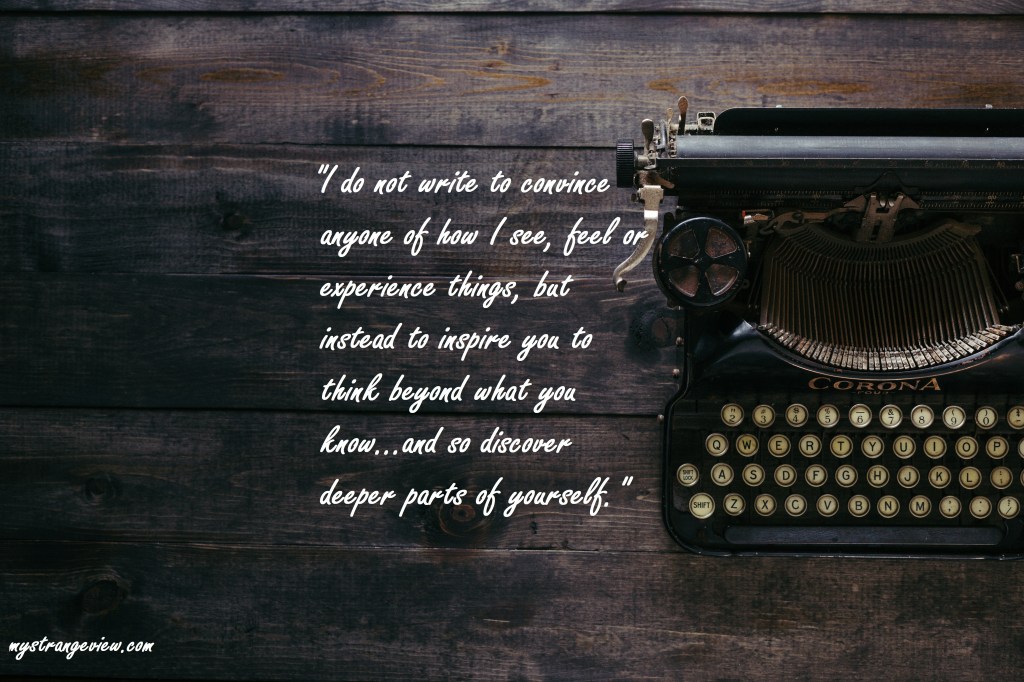 "I do not write to convince
anyone of how I see, feel or
experience things, but
instead to inspire you to
think beyond what you
know...and so discover
deeper parts of yourself."
CORONA
2 3 4 5 6 7 8 9 0
Q W E R T Y U I O P
SHIFT LOCK A S D F G H J K L
SHIFT Z X C V B N M
mystrangeview.com